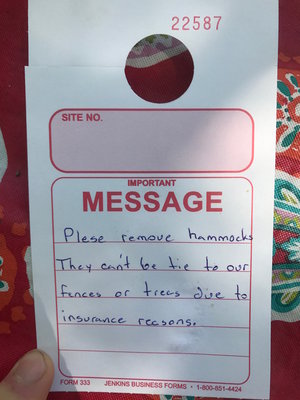 22587
SITE NO.
IMPORTANT
MESSAGE
Plese remove hammocks
They can't be tie to our
fences or trees due to
insurance reasons.
FORM 333 JENKINS BUSINESS FORMS • 1-800-851-4424